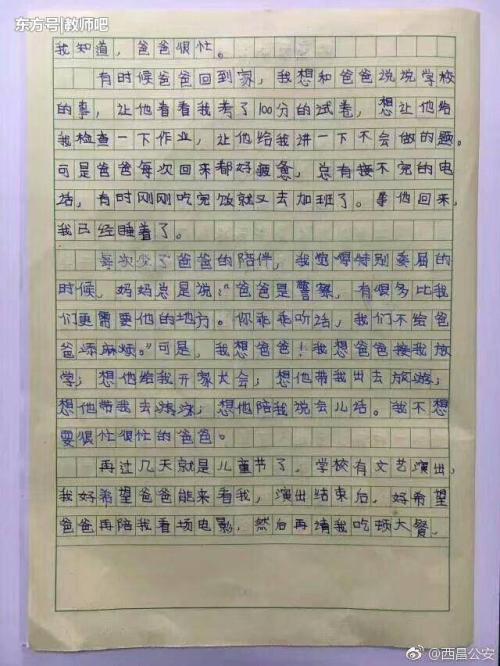 东方号|教师吧
我知道，爸爸很忙。
有时候爸爸回到家，我想和爸爸说说学校
的事，让他看看我考了100分的试卷，想让他给
我检查一下作业，让他给我讲一下不会做的题。
可是爸爸每次回来都好疲惫，总有接不完的电
话，有时刚刚吃完饭就又去加班了。等他回来，
我已经睡着了。
每次少了爸爸的陪伴，我觉得特别委屈的
时候，妈妈总是说：“爸爸是警察，有很多比我
们更需要他的地方。你乖乖听话，我们不给爸
爸添麻烦。”可是，我想爸爸！我想爸爸接我放
学；想他给我开家长会；想他带我出去旅游；
想他带我去游泳；想他陪我说会儿话。我不想
要很忙很忙的爸爸。
再过几天就是儿童节了。学校有文艺演出，
我好希望爸爸能来看我，演出结束后，好希望
爸爸再陪我看场电影，然后再请我吃顿大餐。
@西昌公安